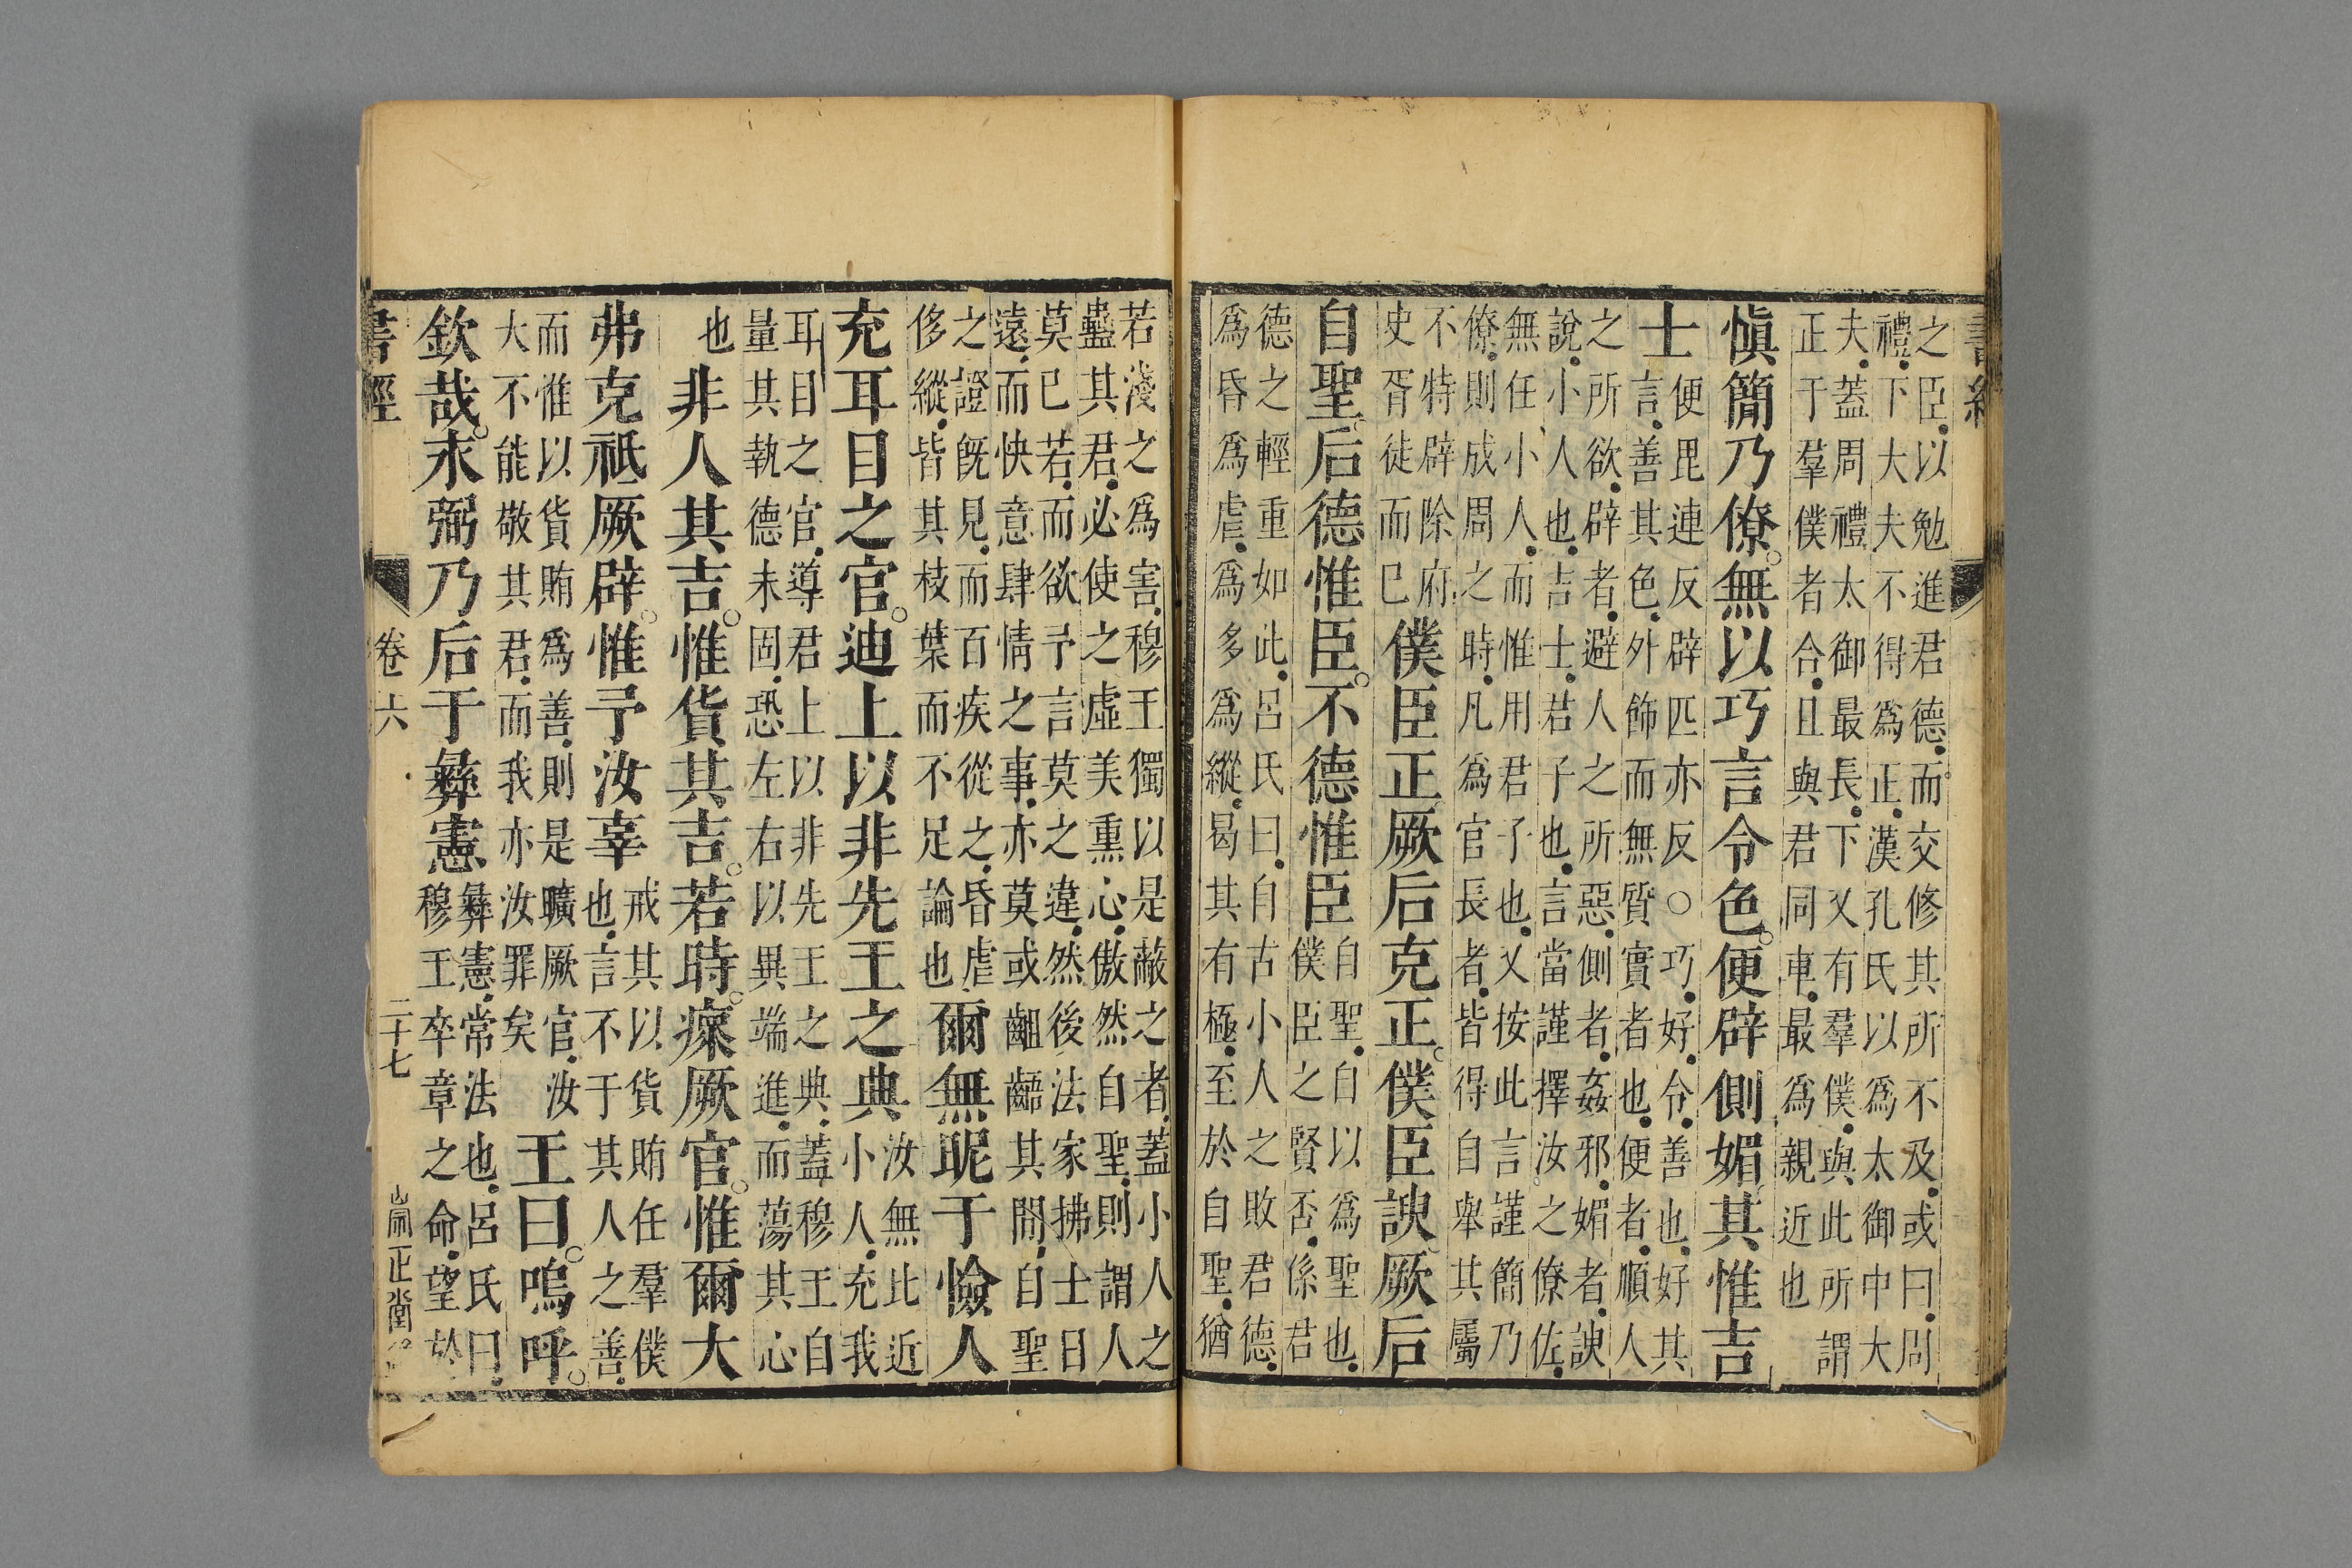 書經
之臣以勉進君德而交修其所不及或曰周
禮下大夫不得爲正漢孔氏以爲太御中大
夫蓋周禮太御最長下又有羣僕與此所謂
正于羣僕者合且與君同車最爲親近也
愼簡乃僚無以巧言令色便辟側媚其惟吉
士
便毘連反辟匹亦反○巧好令善也好其
言善其色外飾而無質實者也便者順人
之所欲辟者避人之所惡側者姦邪媚者諛
說小人也吉士君子也言當謹擇汝之僚佐
無任小人而惟用君子也又按此言謹簡乃
僚則成周之時凡爲官長者皆得自舉其屬
不特辟除府
史胥徒而已
僕臣正厥后克正僕臣諛厥后
自聖后德惟臣不德惟臣
自聖自以爲聖也
僕臣之賢否係君
德之輕重如此呂氏曰自古小人之敗君德
爲昏爲虐爲多爲縱曷其有極至於自聖猶
若淺之爲害穆王獨以是蔽之者蓋小人之
蠱其君必使之虛美熏心傲然自聖則謂人
莫已若而欲予言莫之違然後法家拂士日
遠而快意肆情之事亦莫或齟齬其閒自聖
之證旣見而百疾從之昏虐
侈縱皆其枝葉而不足論也
爾無昵于憸人
充耳目之官迪上以非先王之典
汝無比近
小人充我
耳目之官導君上以非先王之典蓋穆王自
量其執德未固恐左右以異端進而蕩其心
也
非人其吉惟貨其吉若時瘝厥官惟爾大
弗克祗厥辟惟予汝辜
戒其以貨賄任羣僕
也言不于其人之善
而惟以貨賄爲善則是曠厥官汝
大不能敬其君而我亦汝罪矣
王曰嗚呼
欽哉永弼乃后于彝憲
彝憲常法也呂氏曰
穆王卒章之命望於
書經 卷六 二十七 崇正堂